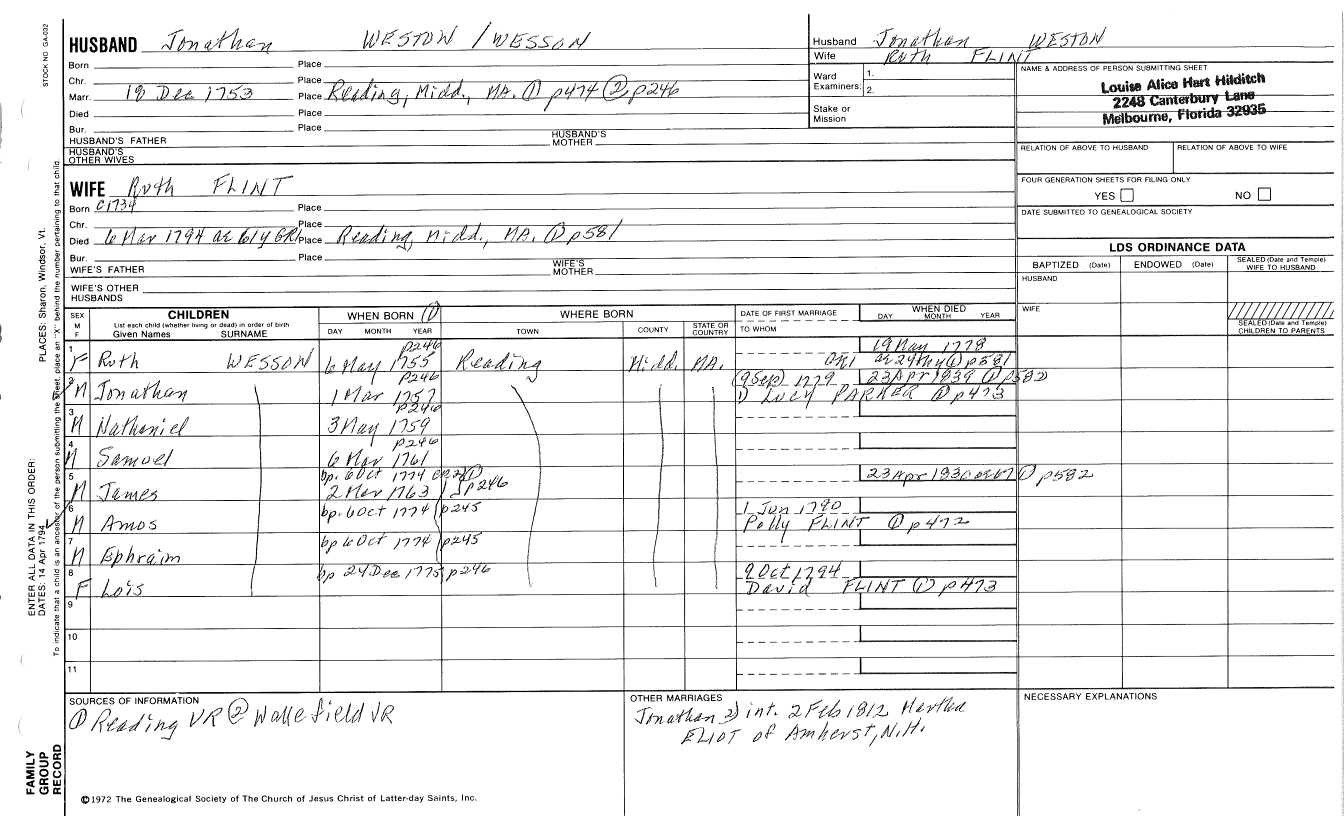 STOCK NO GA-032
HUSBAND Jonathan WESTON / WESSON
Born Place
Chr. Place
Marr. 18 Dec 1753 Place Reading, Midd., MA. ① p474 ② p246
Died Place
Bur. Place
HUSBAND'S FATHER HUSBAND'S MOTHER
HUSBAND'S OTHER WIVES
WIFE Ruth FLINT
Born c1734 Place
Chr. Place
Died 6 Mar 1794 ae 61y GR1 Place Reading, Midd., MA. ① p581
Bur. Place
WIFE'S FATHER WIFE'S MOTHER
WIFE'S OTHER HUSBANDS
Husband Jonathan WESTON
Wife Ruth FLINT
Ward 1.
Examiners: 2.
Stake or
Mission
NAME & ADDRESS OF PERSON SUBMITTING SHEET
Louise Alice Hart Hilditch
2248 Canterbury Lane
Melbourne, Florida 32935
RELATION OF ABOVE TO HUSBAND RELATION OF ABOVE TO WIFE
FOUR GENERATION SHEETS FOR FILING ONLY
YES NO
DATE SUBMITTED TO GENEALOGICAL SOCIETY
LDS ORDINANCE DATA
BAPTIZED (Date) ENDOWED (Date) SEALED (Date and Temple) WIFE TO HUSBAND
HUSBAND
WIFE
SEALED (Date and Temple) CHILDREN TO PARENTS
SEX M F
CHILDREN
List each child (whether living or dead) in order of birth
Given Names SURNAME
WHEN BORN ①
DAY MONTH YEAR
WHERE BORN
TOWN COUNTY STATE OR COUNTRY
DATE OF FIRST MARRIAGE
TO WHOM
WHEN DIED
DAY MONTH YEAR
p246 19 May 1778
1 F Ruth WESSON 6 May 1755 Reading Midd. MA. ae 24y ① p581
p246 (9 Sep) 1779 23 Apr 1839 ① p582
2 M Jonathan 1 Mar 1757 1) Lucy PARKER ① p473
p246
3 M Nathaniel 3 May 1759
p246
4 M Samuel 6 Mar 1761
bp. 6 Oct 1774 23 Apr 1830 ① p582
5 M James 2 Mar 1763 p246
bp. 6 Oct 1774 p245 1 Jun 1790
6 M Amos Polly FLINT ① p472
7 M Ephraim bp 6 Oct 1774 p245
bp 24 Dec 1775 p246 9 Oct 1794
8 F Lois David FLINT ① p473
9
10
11
SOURCES OF INFORMATION
① Reading VR ② Wakefield VR
OTHER MARRIAGES
Jonathan 2) int. 2 Feb 1812 Martha
ELIOT of Amherst, N.H.
NECESSARY EXPLANATIONS
©1972 The Genealogical Society of The Church of Jesus Christ of Latter-day Saints, Inc.
ENTER ALL DATA IN THIS ORDER:
DATES: 14 Apr 1794 PLACES: Sharon, Windsor, Vt.
To indicate that a child is an ancestor of the person submitting the sheet, place an "X" behind the number pertaining to that child
FAMILY
GROUP
RECORD